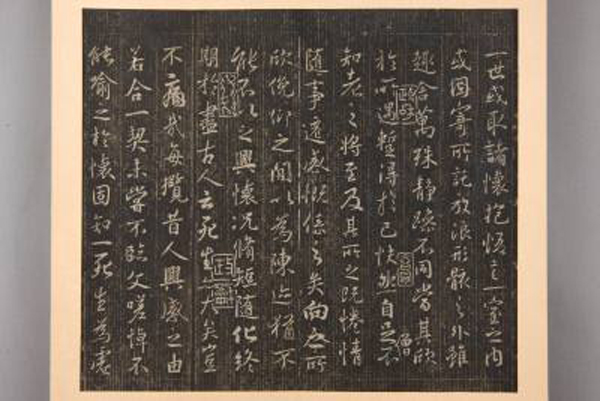 一世或取諸懷抱悟言一室之內
或因寄所託放浪形骸之外雖
趣舍萬殊靜躁不同當其欣
於所遇蹔得於己怏然自足不
知老之將至及其所之既惓情
隨事遷感慨係之矣向之所
欣俛仰之閒以為陳迹猶不
能不以之興懷況脩短隨化終
期於盡古人云死生亦大矣豈
不痛哉每攬昔人興感之由
若合一契未嘗不臨文嗟悼不
能喻之於懷固知一死生為虛
僧